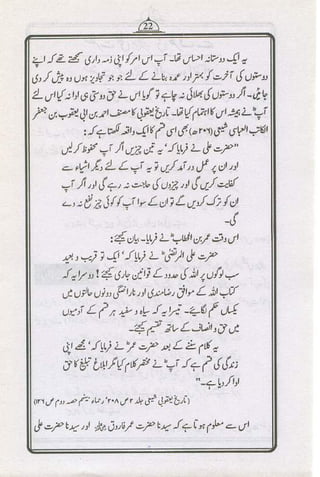 22
یہ ایک دوستانہ احساس تھا۔ آپ اس امر کو اپنی ذمہ داری سمجھتے تھے کہ اپنے
دوستوں کی آخرت کو بہتر اور عمدہ بنانے کے لئے جو جو تجاویز ہوں وہ پیش کر دی
جائیں۔ اگر دوستوں کی بھلائی نہ چاہے تو گویا اس نے حق دوستی ہی ادا نہ کیا اس لئے
آپؓ نے ہمیشہ اس کا اہتمام کیا تھا۔ تاریخ یعقوبی کا مصنف احمد بن ابی یعقوب بن جعفر
الکاتب العباسی شیعی (م ۲۰۶ھ) بھی اسی قسم کا ایک واقعہ لکھتا ہے کہ:
"حضرت علی نے فرمایا کہ 'یہ تین چیزیں اگر آپ محفوظ کر لیں
اور ان پر عمل در آمد کریں تو یہ آپ کے لئے دیگر اشیاء سے
کفایت کریں گی اور چیزوں کی حاجت نہ رہے گی اور اگر آپ
ان کو ترک کر دیں گے تو ان کے سوا آپ کو کوئی چیز نفع نہ دے
گی۔
اس وقت عمر بن الخطابؓ نے فرمایا۔ بیان کیجئے:
حضرت علی المرتضیٰؓ نے فرمایا کہ 'ایک تو قریب و بعید
سب لوگوں پر اللہ کی حدود کے قوانین جاری کیجئے! دوسرا یہ کہ
کتاب اللہ کے موافق رضامندی اور ناراضگی دونوں حالتوں میں
یکساں حکم لگائیے۔ تیسرا یہ کہ سیاہ و سفید ہر قسم کے آدمیوں
میں حق و انصاف کے ساتھ تقسیم کیجئے۔
یہ کلام سننے کے بعد حضرت عمرؓ نے فرمایا کہ 'مجھے اپنی
زندگی کی قسم ہے کہ آپؓ نے مختصر کلام کیا مگر ابلاغ و تبلیغ کا حق
ادا کر دیا ہے۔"
(تاریخ یعقوبی شیعی جلد ۲ ص ۲۰۸' رحماء بینہم حصہ دوم ص ۱۳۶)
اس سے معلوم ہوتا ہے کہ سیدنا حضرت عمر فاروق اور سیدنا حضرت علی